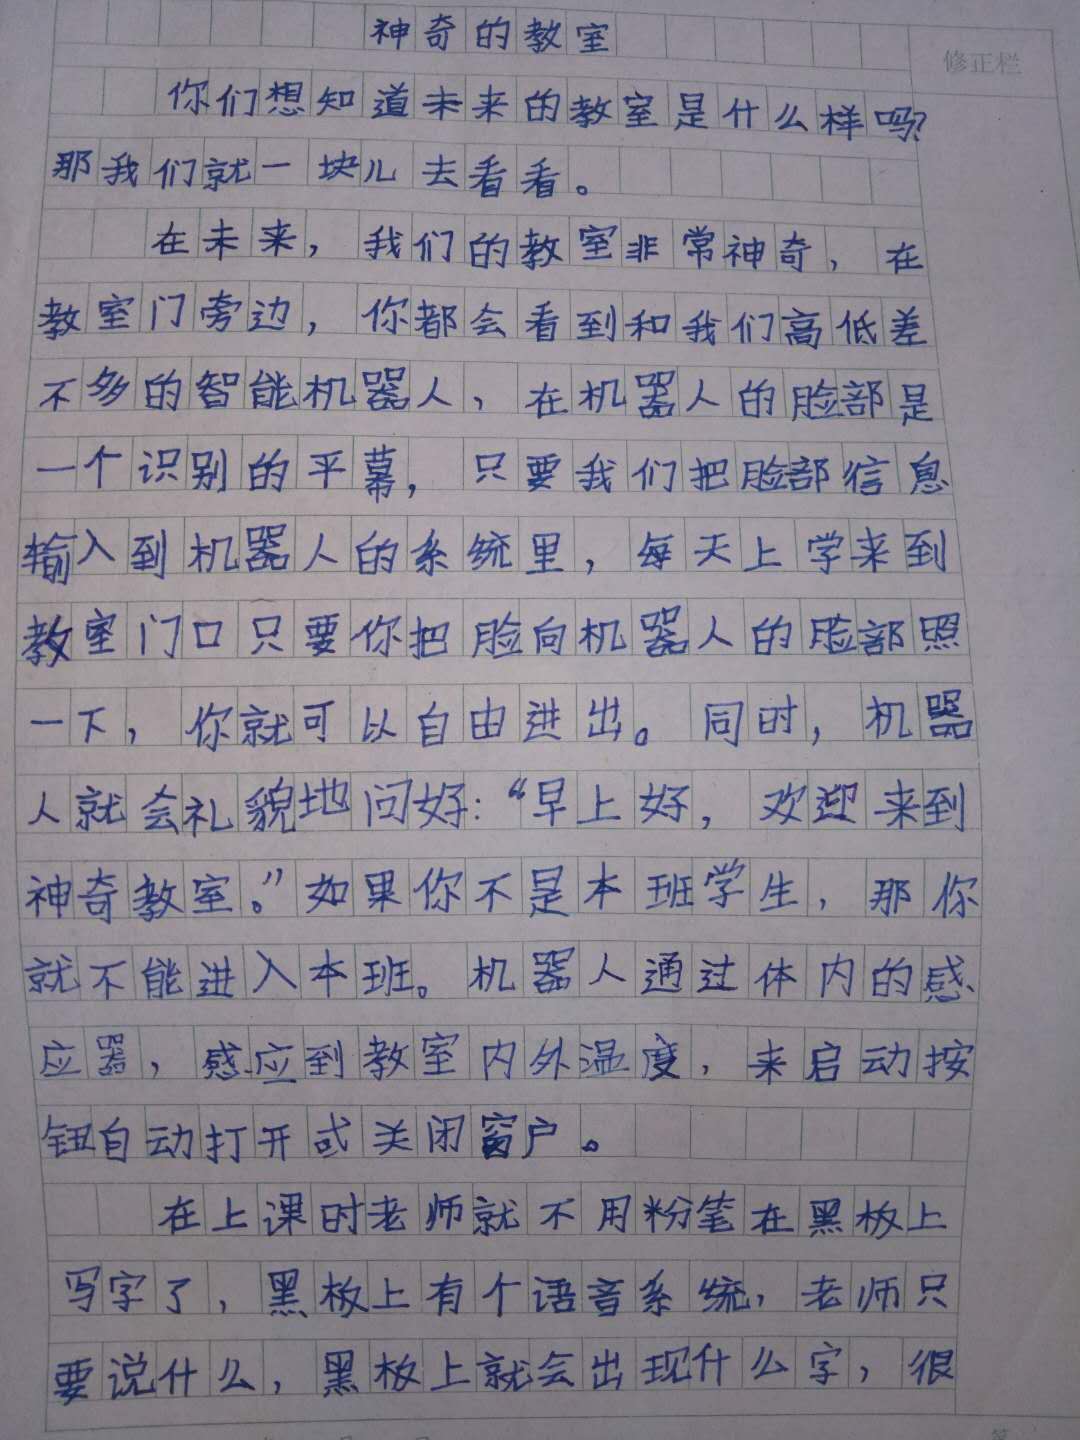 神奇的教室
修正栏
你们想知道未来的教室是什么样吗?
那我们就一块儿去看看。
在未来，我们的教室非常神奇，在
教室门旁边，你都会看到和我们高低差
不多的智能机器人，在机器人的脸部是
一个识别的平幕，只要我们把脸部信息
输入到机器人的系统里，每天上学来到
教室门口只要你把脸向机器人的脸部照
一下，你就可以自由进出。同时，机器
人就会礼貌地问好:“早上好，欢迎来到
神奇教室。”如果你不是本班学生，那你
就不能进入本班。机器人通过体内的感
应器，感应到教室内外温度，来启动按
钮自动打开或关闭窗户。
在上课时老师就不用粉笔在黑板上
写字了，黑板上有个语音系统，老师只
要说什么，黑板上就会出现什么字，很